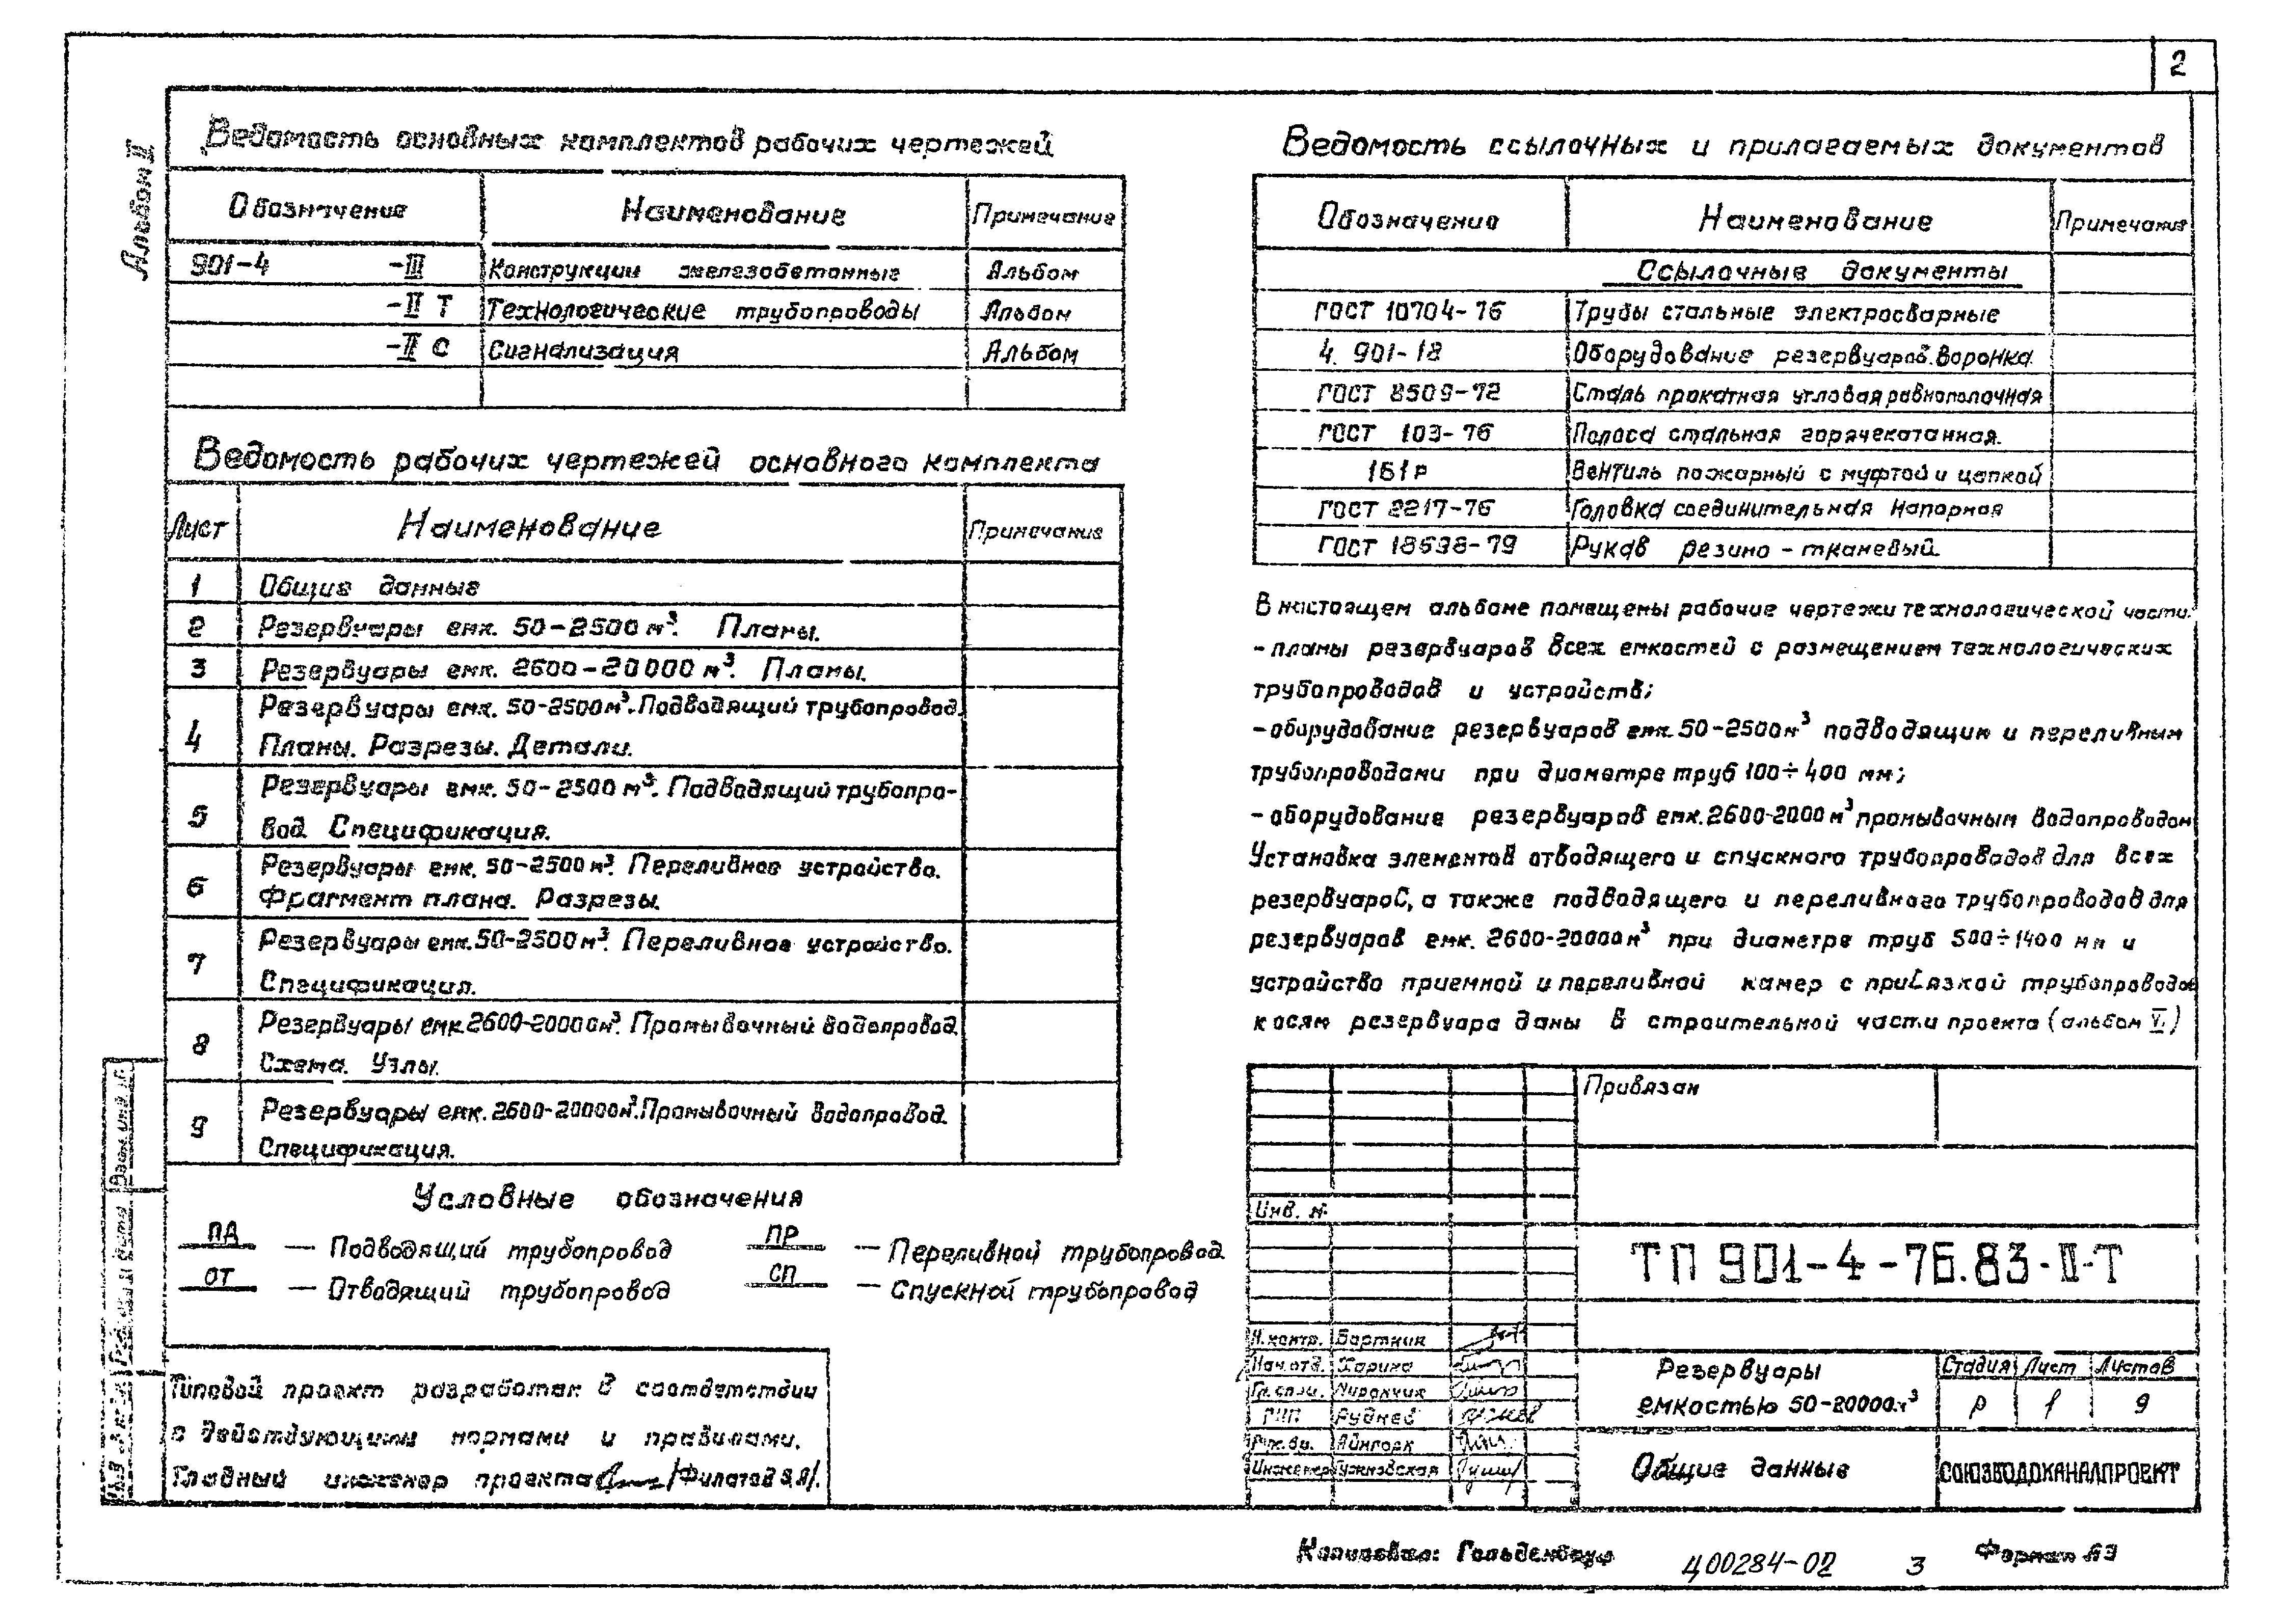 2
Альбом II
Ведомость основных комплектов рабочих чертежей
Обозначение Наименование Примечание
901-4 -III Конструкции железобетонные Альбом
-II Т Технологические трубопроводы Альбом
-II С Сигнализация Альбом
Ведомость рабочих чертежей основного комплекта
Лист Наименование Примечание
1 Общие данные
2 Резервуары емк. 50-2500 м³. Планы.
3 Резервуары емк. 2600-20000 м³. Планы.
4 Резервуары емк. 50-2500м³. Подводящий трубопровод.
Планы. Разрезы. Детали.
5 Резервуары емк. 50-2500 м³. Подводящий трубопро-
вод. Спецификация.
6 Резервуары емк. 50-2500 м³. Переливное устройство.
Фрагмент плана. Разрезы.
7 Резервуары емк. 50-2500м³. Переливное устройство.
Спецификация.
8 Резервуары емк. 2600-20000м³. Промывочный водопровод.
Схема. Узлы.
9 Резервуары емк. 2600-20000м³. Промывочный водопровод.
Спецификация.
Условные обозначения
ПД — Подводящий трубопровод
ПР — Переливной трубопровод
ОТ — Отводящий трубопровод
СП — Спускной трубопровод
Типовой проект разработан в соответствии
с действующими нормами и правилами.
Главный инженер проекта /Филатов
Ведомость ссылочных и прилагаемых документов
Обозначение Наименование Примечание
Ссылочные документы
ГОСТ 10704-76 Трубы стальные электросварные
4. 901-18 Оборудование резервуаров. Воронка.
ГОСТ 8509-72 Сталь прокатная угловая равнополочная
ГОСТ 103-76 Полоса стальная горячекатанная.
1Б1р Вентиль пожарный с муфтой и цапкой
ГОСТ 2217-76 Головка соединительная напорная
ГОСТ 18698-79 Рукав резино-тканевый.
В настоящем альбоме помещены рабочие чертежи технологической части:
- планы резервуаров всех емкостей с размещением технологических
трубопроводов и устройств;
- оборудование резервуаров емк. 50-2500м³ подводящим и переливным
трубопроводами при диаметре труб 100÷400 мм;
- оборудование резервуаров емк. 2600-2000 м³ промывочным водопроводом
Установка элементов отводящего и спускного трубопроводов для всех
резервуароС, а также подводящего и переливного трубопроводов для
резервуаров емк. 2600-20000м³ при диаметре труб 500÷1400 мм и
устройство приемной и переливной камер с привязкой трубопроводов
к осям резервуара даны в строительной части проекта (альбом V.)
Привязан
Инв. №
ТП 901-4-76.83-II-Т
Н.контр. Бартник
Нач.отд. Харина
Гл.спец. Миропчик
ГИП Руднев
Рук.бр. Айнгорн
Инженер Гужновская
Резервуары
емкостью 50-20000м³
Стадия Лист Листов
Р 1 9
Общие данные
СОЮЗВОДОКАНАЛПРОЕКТ
Копировал: Гольденберг
Ц00284-02 3
Формат А3